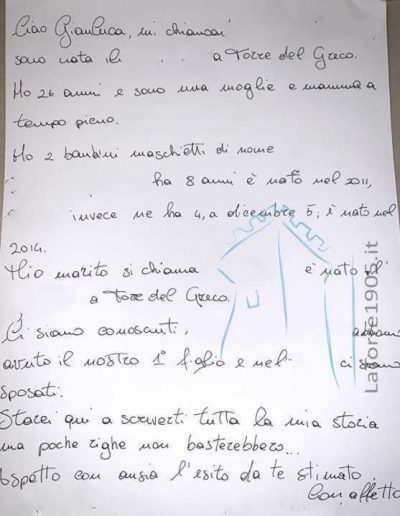 Ciao Gianluca, mi chiamai
sono nata il a Torre del Greco.
Ho 26 anni e sono una moglie e mamma a
tempo pieno.
Ho 2 bambini maschietti di nome
ha 8 anni è nato nel 2011,
invece ne ha 4, a dicembre 5; è nato nel
2014.
Mio marito si chiama è nato il
a Torre del Greco.
Ci siamo conosciuti, abbiamo
avuto il nostro 1° figlio e nel ci siamo
sposati.
Starei qui a scriverti tutta la mia storia
ma poche righe non basterebbero...
Aspetto con ansia l'esito da te stimato.
Con affetto
Latorre1905.it